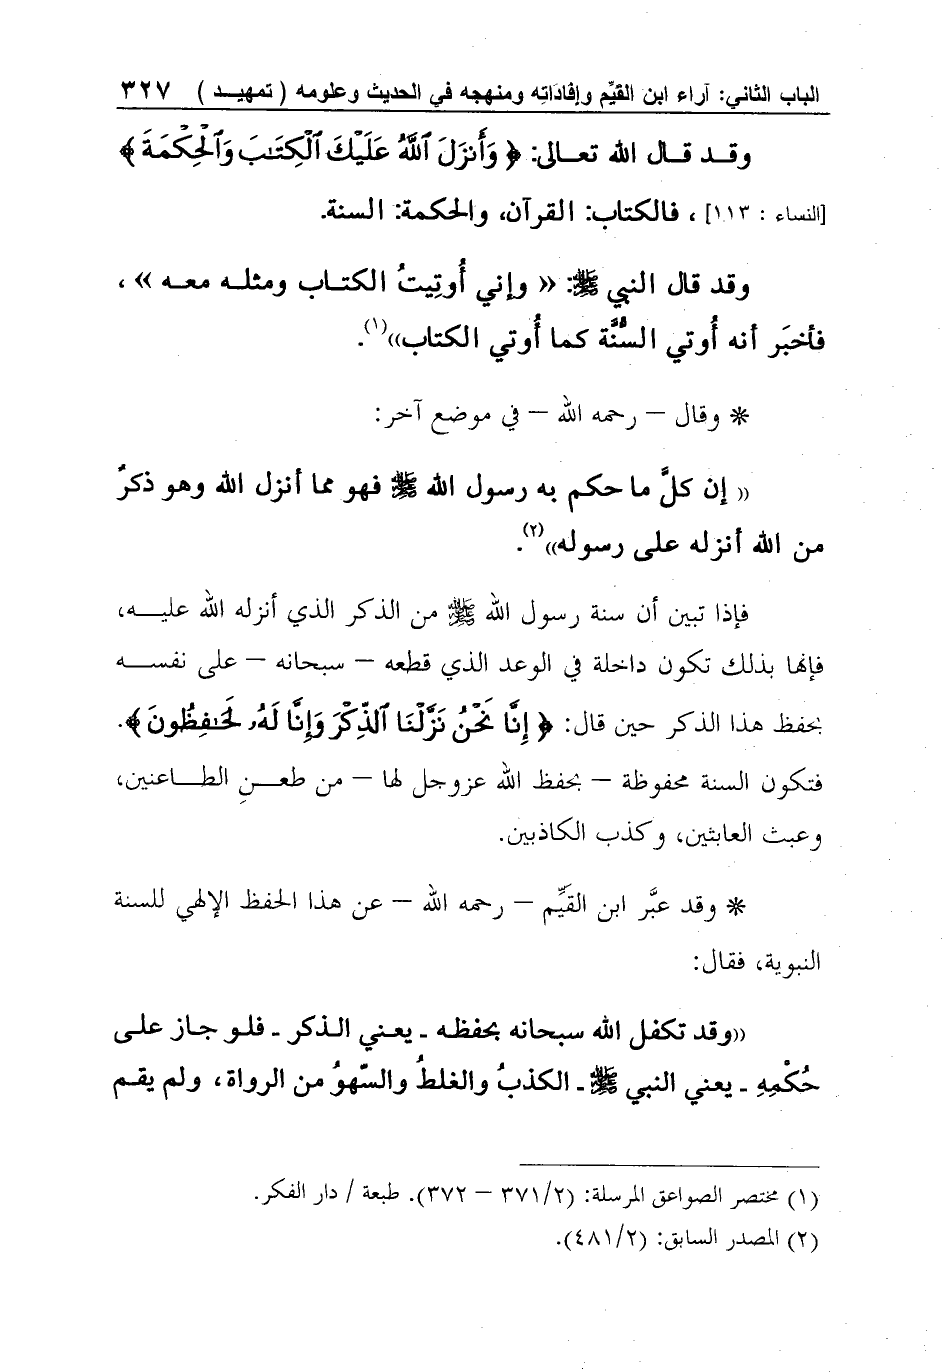 الباب الثاني: آراء ابن القيِّم وإفاداته ومنهجه في الحديث وعلومه ( تمهيـد ) ٣٢٧
وقـد قـال الله تعـالى: ﴿ وَأَنزَلَ ٱللَّهُ عَلَيْكَ ٱلْكِتَـٰبَ وَٱلْحِكْمَةَ ﴾
[النساء : ١١٣] ، فالكتاب: القرآن، والحكمة: السنة.
وقد قال النبي ﷺ: « وإني أُوتِيتُ الكتـاب ومثلـه معـه » ،
فأخبَر أنه أُوتي السُّنَّة كما أُوتي الكتاب»(١).
* وقال – رحمه الله – في موضع آخر:
« إن كلَّ ما حكم به رسول الله ﷺ فهو مما أنزل الله وهو ذكرٌ
من الله أنزله على رسوله»(٢).
فإذا تبين أن سنة رسول الله ﷺ من الذكر الذي أنزله الله عليـه،
فإنها بذلك تكون داخلة في الوعد الذي قطعه – سبحانه – على نفسـه
بحفظ هذا الذكر حين قال: ﴿ إِنَّا نَحْنُ نَزَّلْنَا ٱلذِّكْرَ وَإِنَّا لَهُۥ لَحَـٰفِظُونَ ﴾.
فتكون السنة محفوظة – بحفظ الله عزوجل لها – من طعـنِ الطـاعنين،
وعبث العابثين، وكذب الكاذبين.
* وقد عبَّر ابن القيِّم – رحمه الله – عن هذا الحفظ الإلهي للسنة
النبوية، فقال:
«وقد تكفل الله سبحانه بحفظه ـ يعني الذكر ـ فلو جاز على
حُكْمِهِ ـ يعني النبي ﷺ ـ الكذبُ والغلطُ والسّهوُ من الرواة، ولم يقم
(١) مختصر الصواعق المرسلة: (٣٧١/٢ – ٣٧٢). طبعة / دار الفكر.
(٢) المصدر السابق: (٤٨١/٢).